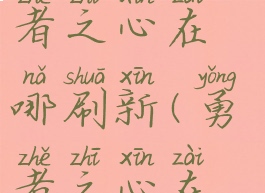 zhě zhī xīn zài
者之心在
nǎ shuā xīn yǒng
哪刷新(勇
zhě zhī xīn zài
者之心在